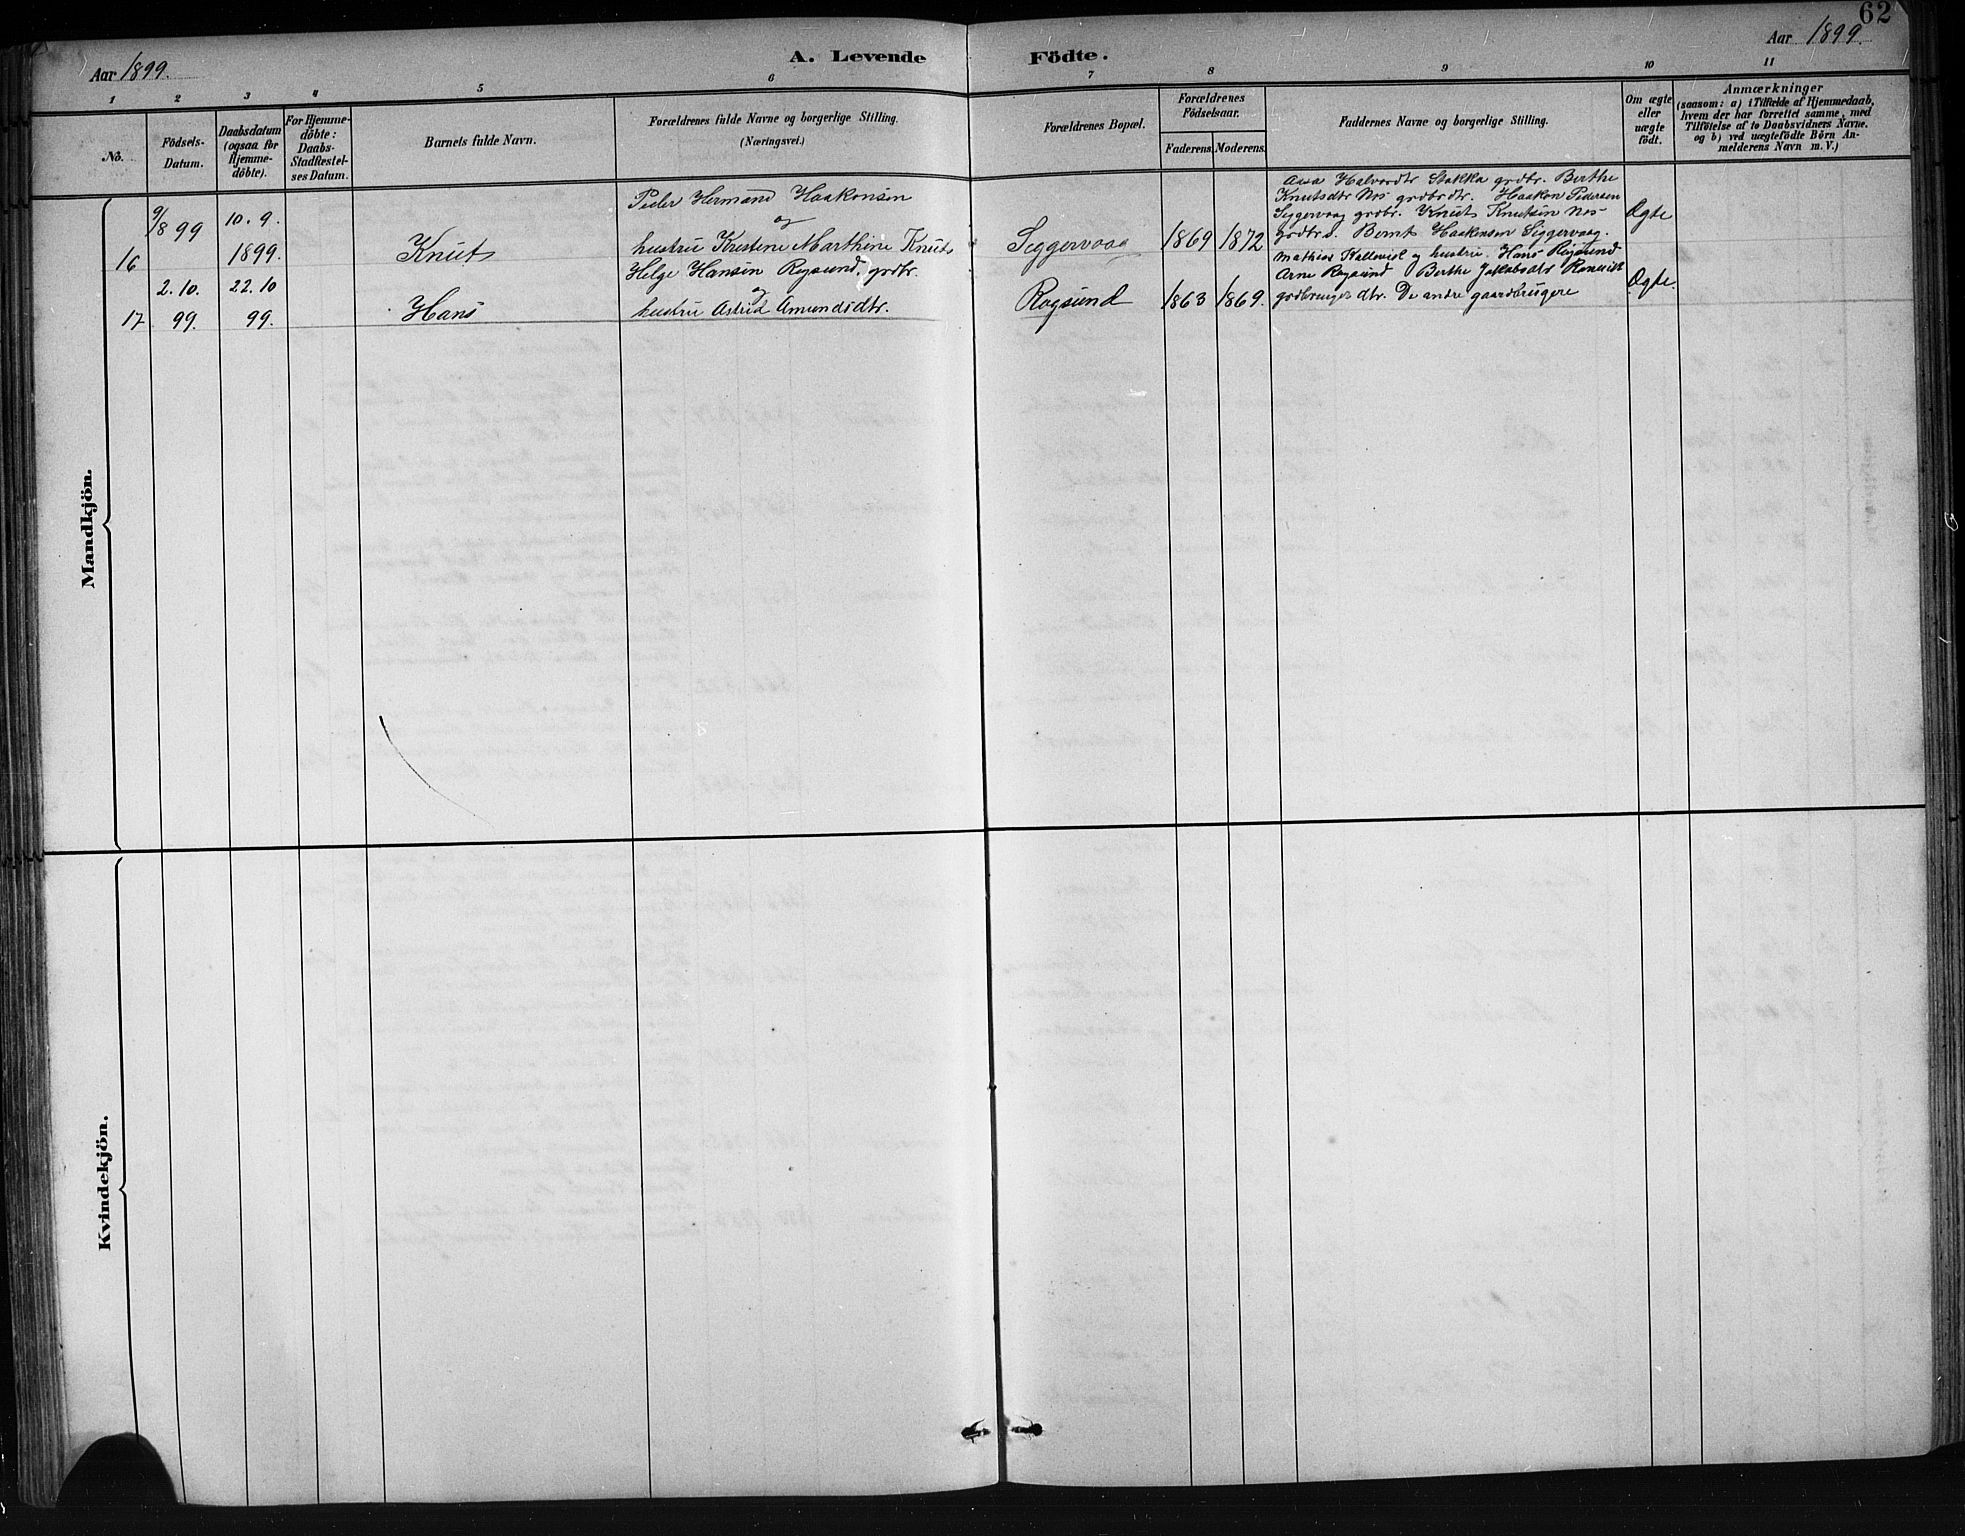 62
Aar 1899.
A. Levende Födte.
Aar 1899.
1 2 3 4 5 6 7 8 9 10 11
No.
Födsels-
Datum.
Daabsdatum
(ogsaa for
Hjemme-
döbte).
For Hjemme-
döbte:
Daabs-
Stadfæstel-
ses Datum.
Barnets fulde Navn.
Forældrenes fulde Navne og borgerlige Stilling.
(Næringsvei.)
Forældrenes Bopæl.
Forældrenes
Födselsaar.
Faderens. Moderens.
Faddernes Navne og borgerlige Stilling.
Om ægte
eller
uægte
födt.
Anmærkninger
(saasom: a) i Tilfælde af Hjemmedaab,
hvem der har forrettet samme, med
Tilföielse af to Daabsvidners Navne.
og b) ved uægtefödte Börn An-
melderens Navn m. V.)
Mandkjön.
16
9/8 99
10. 9.
1899.
Knut
Peder Hermand Haakonsen
og
hustru Kristine Marthine Knuts
Seggervaag
1869 1872
Aasa Halvordtr Stakka grdbr. Berthe
Knutsdtr Nos grdbrdtr. Haakon Pedersen
Seggervaag grdbr. Knut Knutsen Nos
grdbr. s. Bernt Haakonsen Siggervaag.
Ægte
17
2.10.
99.
22.10
99.
Hans
Helge Hansen Røgsund, grdbr.
og
hustru Astrid Amundsdtr.
Røgsund
1863 1869.
Mathias Hallevik og hustru. Hans Røgsund
Arne Røgsund Berthe Jakobsdtr
grdbruger dtr. De andre gaardbrugere
Ægte.
Kvindekjön.